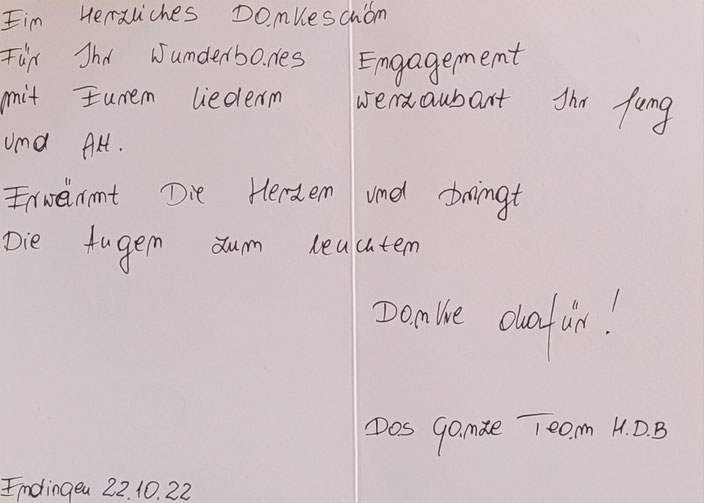 Ein Herzliches Dankeschön
Für Ihr Wunderbares Engagement
mit Euren liedern werzaubart Ihr Jung
und Alt.
Erwärmt Die Herzen und bringt
Die Augen zum leuchten
Danke dafür!
Das ganze Team H.D.B
Endingen 22.10.22